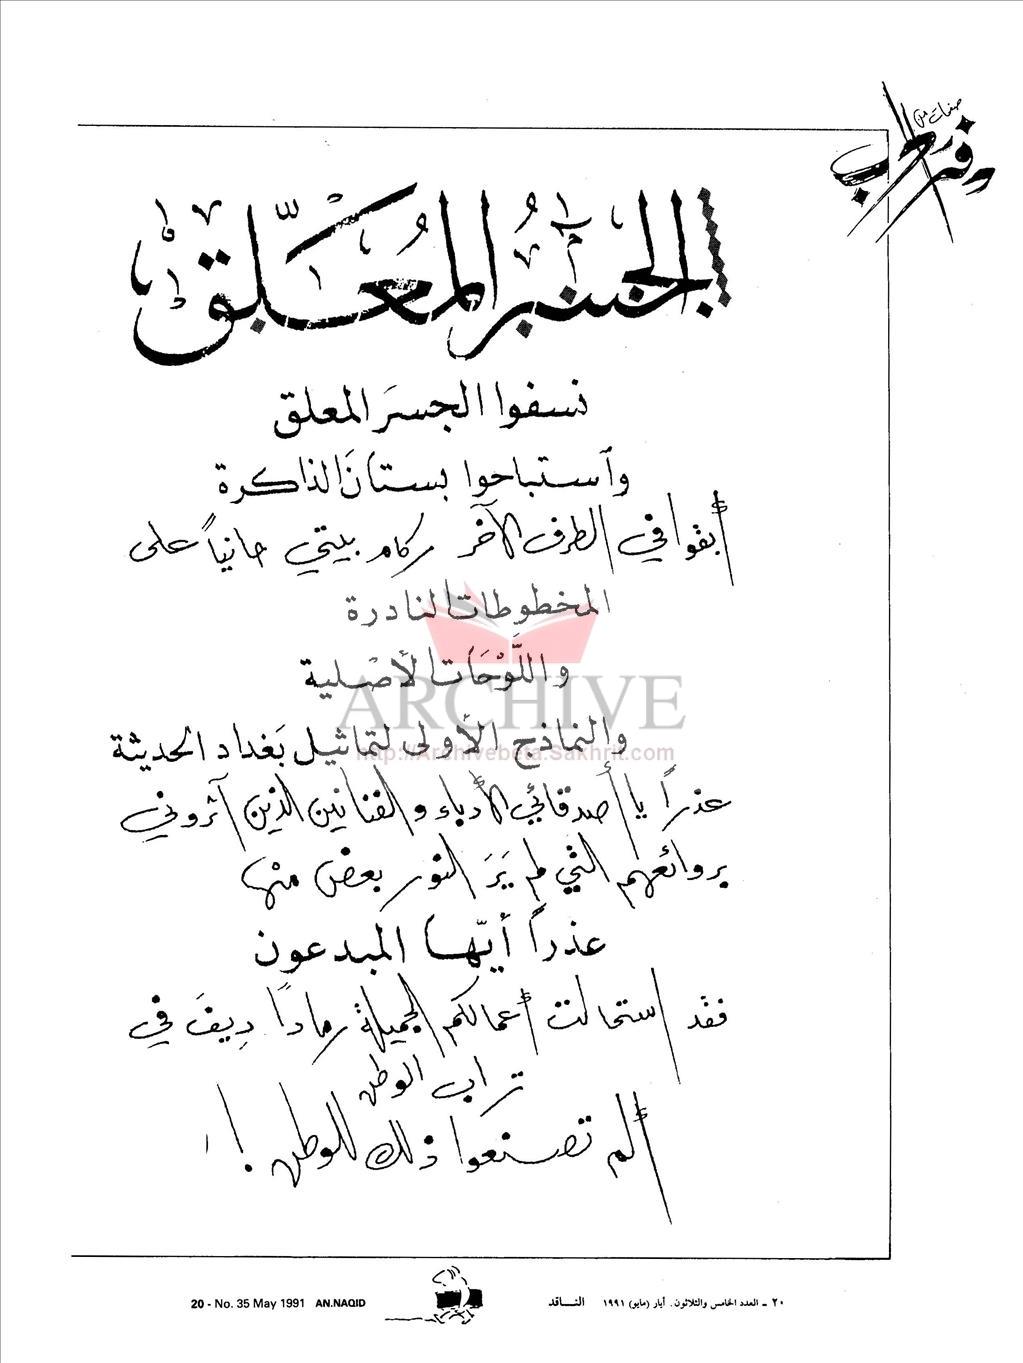 صفحات من
دفتر الحرب
الجسر المعلّق
نسفوا الجسرَ المعلق
وٱستباحوا بستانَ الذاكرة
أبقوا في الطرف الآخر ركام بيتي حانياً على
المخطوطات النادرة
واللَّوْحَات الأصْلية
والنماذج الأولى لتماثيل بَغداد الحديثة
عذراً يا أصدقائي الأدباء والفنانين الذين آثروني
بروائعهم التي لم يَرَ النور بعض منها
عذراً أيّها المبدعون
فقد استحالت أعمالكم الجميلة رماداً دِيفَ في
تراب الوطن
ألم تصنعوا ذلك للوطن !
ARCHIVE
http://Archivebeta.Sakhrit.com
20 - No. 35 May 1991 AN.NAQID
٢٠ - العدد الخامس والثلاثون. أيار (مايو) ١٩٩١ النــاقد